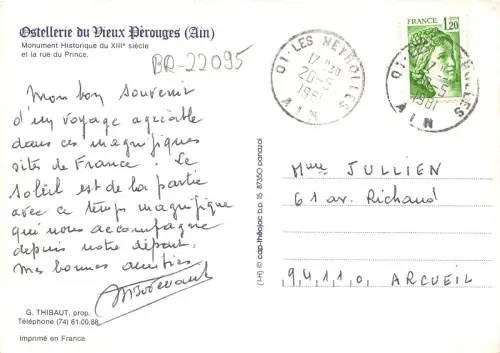 Ostellerie du Vieux Pérouges (Ain)
Monument Historique du XIIIe siècle
et la rue du Prince.
BR-22095
Mon bon souvenir
d'un voyage agréable
dans ces magnifiques
sites de France. Le
soleil est de la partie
avec ce temps magnifique
qui nous accompagne
depuis notre départ.
Mes bonnes amitiés
G. THIBAUT, prop.
Téléphone (74) 61.00.88
Imprimé en France
(1-H) © cap-théojac b.p. 15 87350 panazol
01-LES NEYROLLES
17 H30
20-5
1981
AIN
FRANCE
1,20
01-LES NEYROLLES
1981
AIN
Mme JULLIEN
61 av. Richaud
94110 ARCUEIL